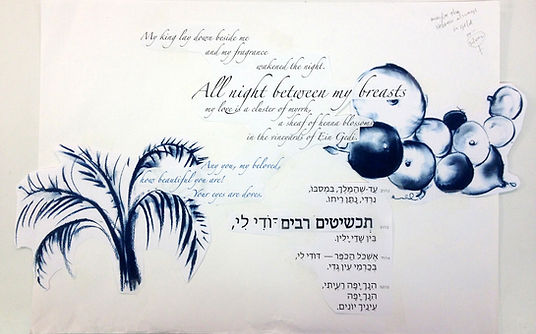 My king lay down beside me
and my fragrance
wakened the night.
All night between my breasts
my love is a cluster of myrrh,
a sheaf of henna blossoms
in the vineyards of Ein Gedi.
Any you, my beloved,
how beautiful you are!
Your eyes are doves.
maybe the
Hebrew always
in gold
עַד־שֶׁהַמֶּלֶךְ, בִּמְסִבּוֹ,
נִרְדִּי, נָתַן רֵיחוֹ.
תכשיטים רבים דוֹדִי לִי,
בֵּין שָׁדַי יָלִין.
אֶשְׁכֹּל הַכֹּפֶר — דּוֹדִי לִי,
בְּכַרְמֵי עֵין גֶּדִי.
הִנָּךְ יָפָה רַעְיָתִי,
הִנָּךְ יָפָה
עֵינַיִךְ יוֹנִים.